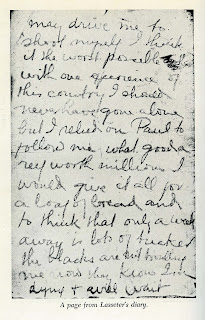 may drive me to
shoot myself I think
it the worst possible
with one experience of
this country I should
never have gone alone
but I relied on Paul to
follow me what good a
reef worth millions I
would give it all for
a loaf of bread and
to think that only a week
away is lots of tucker
the blacks are not troubling
me now they know I'm
dying & will wait
A page from Lasseter's diary.